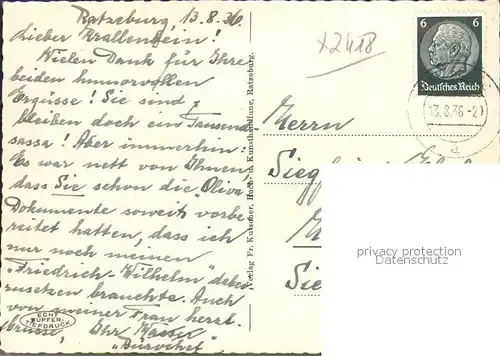 Ratzeburg, 13.8.36
Lieber Krallenstein!
Vielen Dank für Ihre
beiden humorvollen
Ergüsse! Sie sind &
bleiben doch ein Tausend
sassa! Aber immerhin:
Es war nett von Ihnen
dass Sie schon die "Oliva
Dokumente soweit vorbe
reitet hatten, dass ich
nur noch meinen
"Friedrich-Wilhelm" dabei
zusetzen brauchte. Auch
von meiner Frau herzl.
Grüsse, Ihr
ECHT
KUPFER-
TIEFDRUCK
Verlag Fr. Kutscher, Buch- u. Kunsthandlung, Ratzeburg.
x2418
6 6
Deutsches Reich
13.8.36
Herrn
privacy protection
Datenschutz